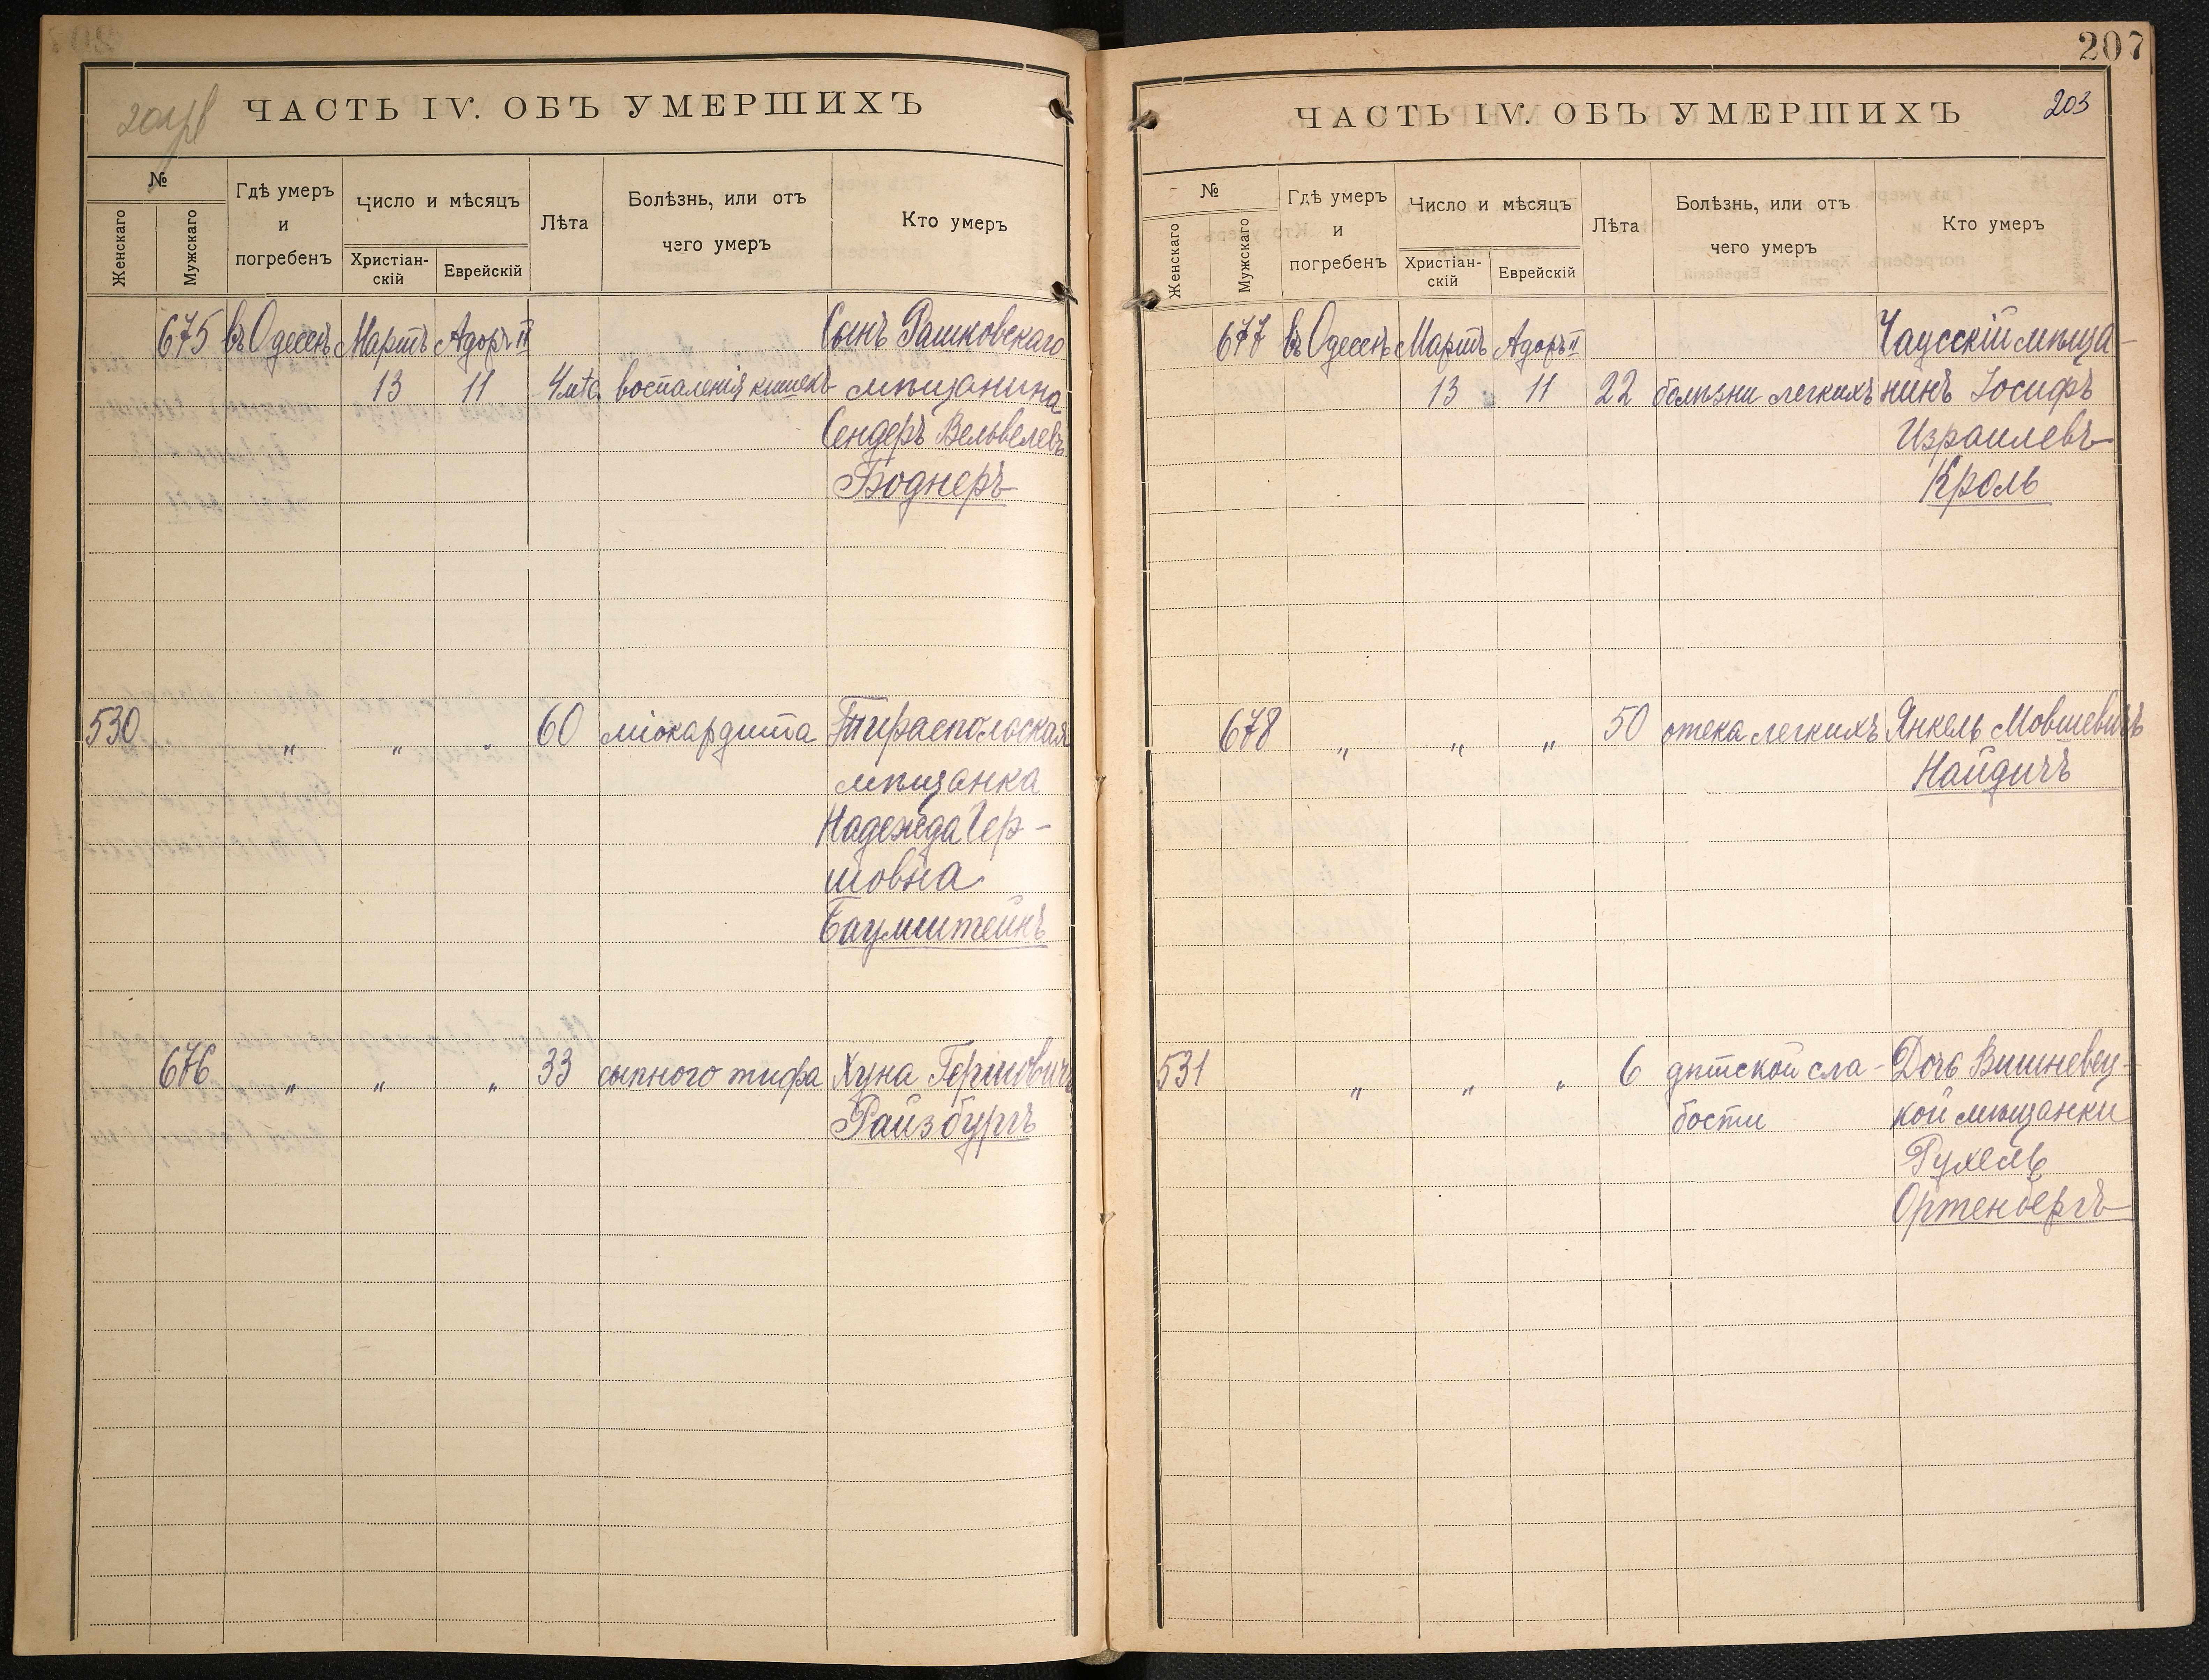 ЧАСТЬ IV. ОБЪ УМЕРШИХЪ
№
Женскаго
Мужскаго
Гдѣ умеръ
и
погребенъ
Число и мѣсяцъ
Христіан-
скій
Еврейскій
Лѣта
Болѣзнь, или отъ
чего умеръ
Кто умеръ
675 въ Одессѣ Мартъ Адоръ II Сынъ Рашковскаго
13 11 4 лѣта воспаленія кишекъ мѣщанина
Сендеръ Вельвелевъ
Боднеръ
530 „ „ „ 60 міокардита Тираспольская
мѣщанка
Надежда Гер-
шовна
Баумштейнъ
676 „ „ „ 33 сыпного тифа Хуна Гершовичъ
Райзбургъ
207
ЧАСТЬ IV. ОБЪ УМЕРШИХЪ
203
№
Женскаго
Мужскаго
Гдѣ умеръ
и
погребенъ
Число и мѣсяцъ
Христіан-
скій
Еврейскій
Лѣта
Болѣзнь, или отъ
чего умеръ
Кто умеръ
677 въ Одессѣ Мартъ Адоръ II Чаусскій мѣща-
13 11 22 болѣзни легкихъ нинъ Іосифъ
Израилевъ
Кроль
678 „ „ „ 50 отека легкихъ Янкель Мовшевичъ
Найдичъ
531 „ „ „ 6 дѣтской сла- Дочь Вишневец-
бости кой мѣщанки
Рухель
Ортенбергъ